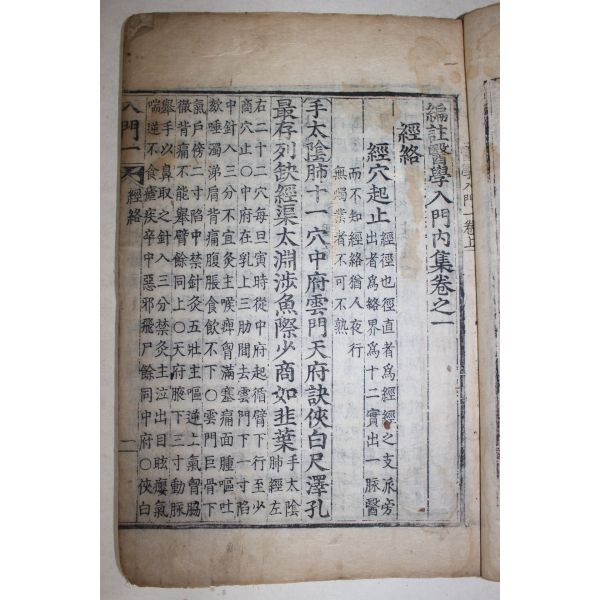 編註醫學入門內集卷之一
經絡
經穴起止
經徑也徑直者爲經經之支派旁
出者爲絡界爲十二實出一脉醫
而不知經絡猶人夜行
無燭業者不可不熟
手太陰肺十一穴中府雲門天府訣俠白尺澤孔
最存列缺經渠太淵涉魚際少商如韭葉
手太陰
肺經左
右二十二穴每旦寅時從中府起循臂下行至少
商穴止〇中府在乳上三肋間去雲門下一寸陷
中針入三分不宜灸主喉痺胷滿塞痛面腫嘔吐
欬唾濁涕肩背痛腹脹食飲不下〇雲門巨骨下
氣戶傍二寸陷中禁針灸五壯主嘔逆上氣胷脇
徹背痛不能舉臂餘同上〇天府腋下三寸動脉
舉手以鼻取之針入三分禁灸主泣出目眩癭氣
喘逆不食瘧疾卒中惡邪飛尸餘同中府〇俠白
入門一
經絡
一